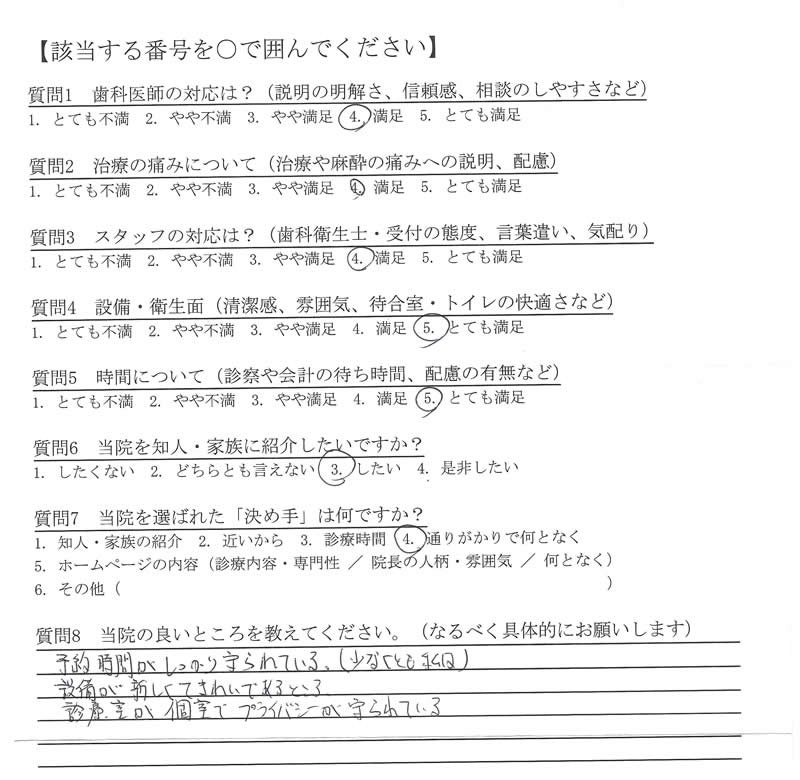 【該当する番号を○で囲んでください】
質問1 歯科医師の対応は？（説明の明解さ、信頼感、相談のしやすさなど）
1. とても不満 2. やや不満 3. やや満足 4. 満足 5. とても満足
質問2 治療の痛みについて（治療や麻酔の痛みへの説明、配慮）
1. とても不満 2. やや不満 3. やや満足 4. 満足 5. とても満足
質問3 スタッフの対応は？（歯科衛生士・受付の態度、言葉遣い、気配り）
1. とても不満 2. やや不満 3. やや満足 4. 満足 5. とても満足
質問4 設備・衛生面（清潔感、雰囲気、待合室・トイレの快適さなど）
1. とても不満 2. やや不満 3. やや満足 4. 満足 5. とても満足
質問5 時間について（診察や会計の待ち時間、配慮の有無など）
1. とても不満 2. やや不満 3. やや満足 4. 満足 5. とても満足
質問6 当院を知人・家族に紹介したいですか？
1. したくない 2. どちらとも言えない 3. したい 4. 是非したい
質問7 当院を選ばれた「決め手」は何ですか？
1. 知人・家族の紹介 2. 近いから 3. 診療時間 4. 通りがかりで何となく
5. ホームページの内容（診療内容・専門性 ／ 院長の人柄・雰囲気 ／ 何となく）
6. その他（ ）
質問8 当院の良いところを教えてください。（なるべく具体的にお願いします）
予約時間がしっかり守られている。（少なくとも
設備が新しくてきれいであるところ
診療室が個室でプライバシーが守られている